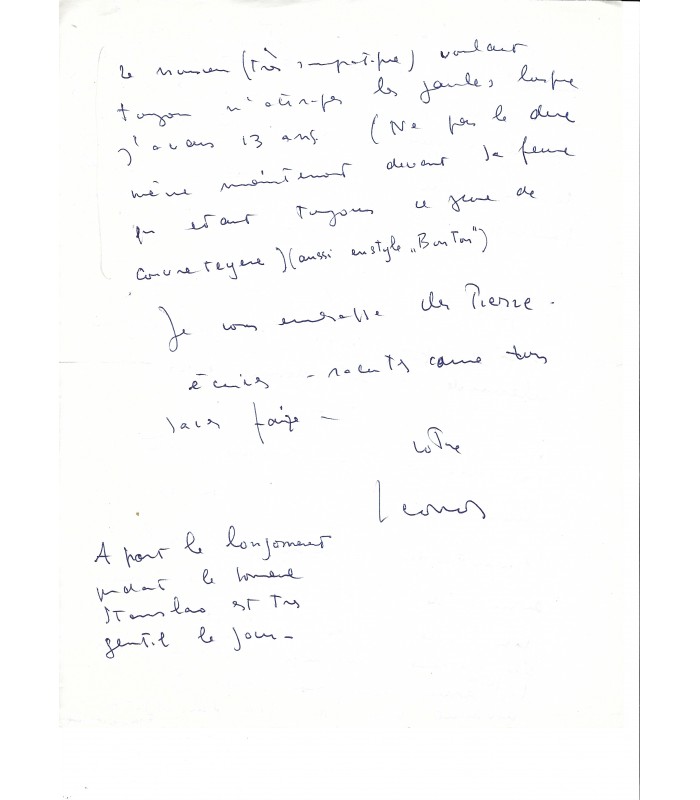 le monsieur (très sympatique) voulait
toujours m'attraper les jambes lorsque
j'avais 13 ans (Ne pas le dire
même maintenant devant sa femme
qui etant toujours ce genre de
couvre teyere) (aussi en style „Bon Ton")
Je vous embrasse cher Pierre.
écrives - racontes comme tu
sais faire -
votre
Leonor
A part le
pendant le
Stanislao est très
gentil le jour -